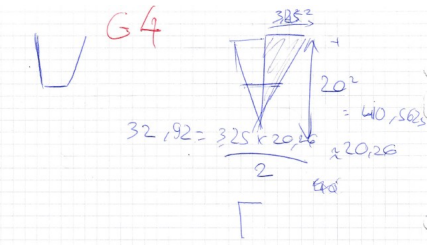 G4
3,25²
20²
= 410,5625
32,92 = 3,25 × 20,26
2
≈ 20,26